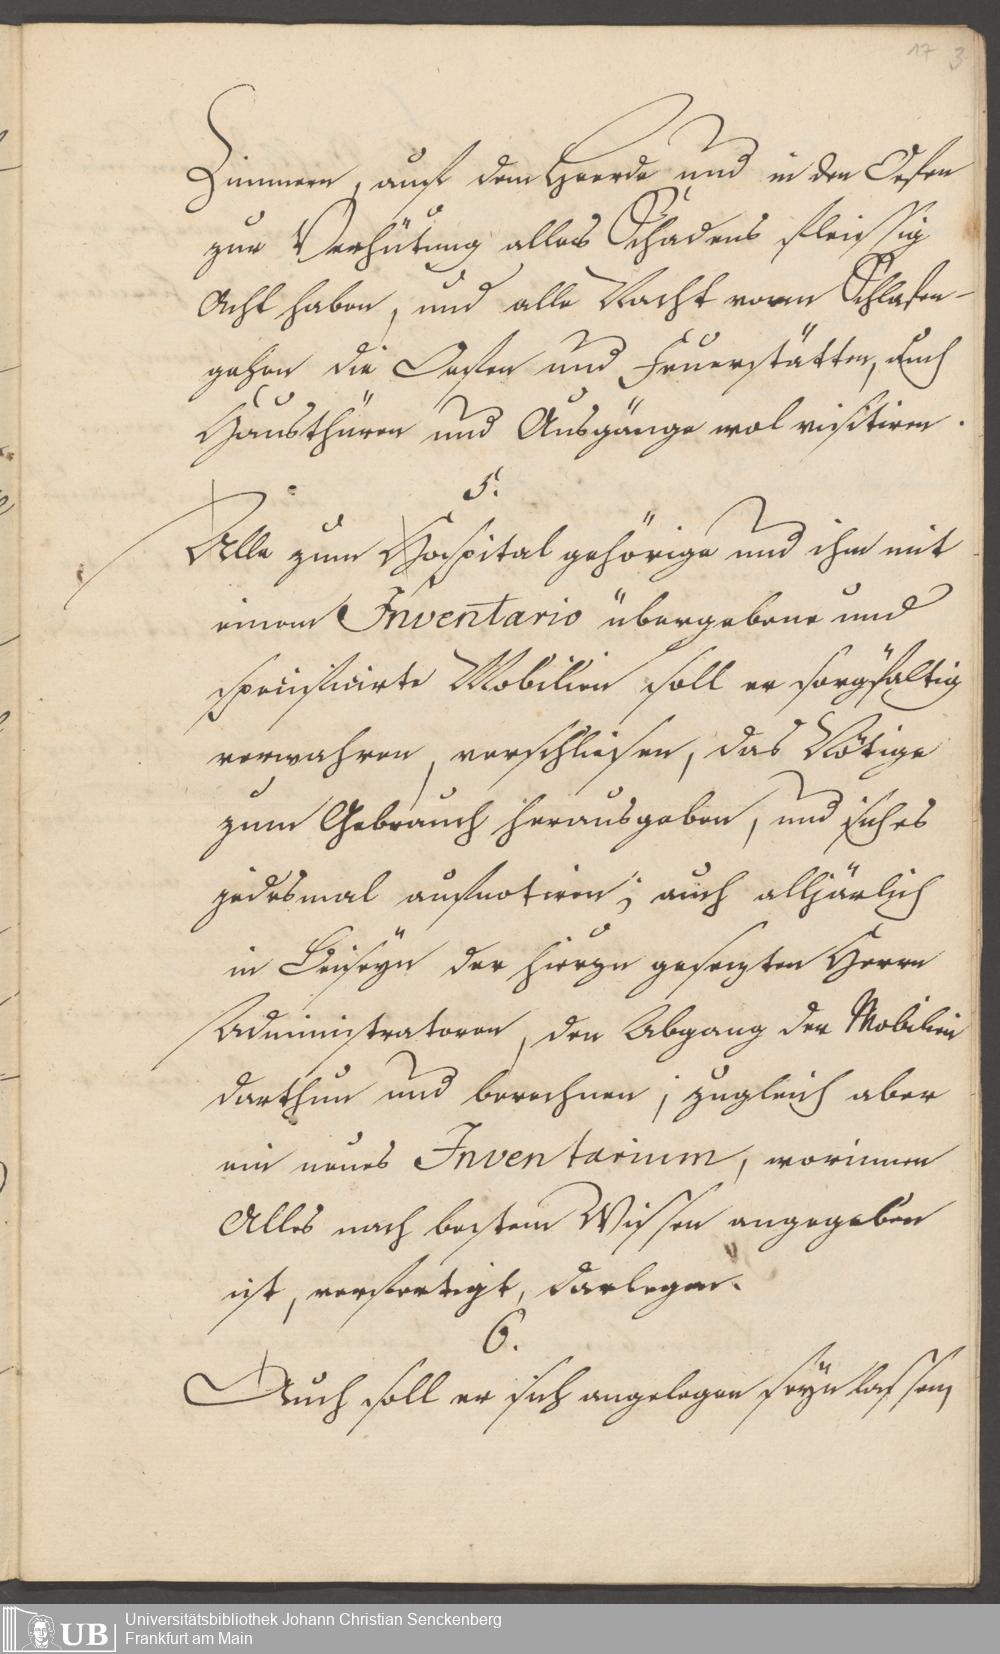 17 3
Zimmern, auf dem Heerde und in den Oefen
zur Verhütung alles Schadens fleissig
Acht haben, und alle Nacht vorm Schlafen-
gehen die Oefen und Feuerstätten, auch
Hausthüren und Ausgänge wol visitiren.
5.
Alle zum Hospital gehörige und ihm mit
einem Inventario übergebene und
specificirte Mobilien soll er sorgfältig
verwahren, verschliesen, das Nötige
zum Gebrauch herausgeben, und solches
jedesmal aufnotiren; auch alljärlich
in Beiseyn der hierzu gesezten Herrn
Administratoren, den Abgang der Mobilien
darthun und berechnen; zugleich aber
ein neues Inventarium, worinnen
Alles nach bestem Wissen angegeben
ist, verfertigt, darlegen.
6.
Auch soll er sich angelegen seyn lassen,
UB
Universitätsbibliothek Johann Christian Senckenberg
Frankfurt am Main